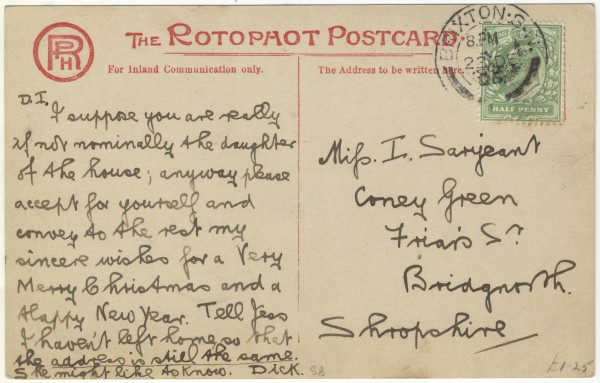 RPH
THE ROTOPHOT POSTCARD.
For Inland Communication only.
The Address to be written here.
BRIXTON.S.
8.PM
23 DE
05
HALF PENNY
D.I.
I suppose you are really
if not nominally the daughter
of the house; anyway please
accept for yourself and
convey to the rest my
sincere wishes for a Very
Merry Christmas and a
Happy New Year. Tell Jess
I haven't left home, so that
the address is still the same.
She might like to know. Dick.
Miss. I. Sarjeant
Coney Green
Friars St
Bridgnorth.
Shropshire
58
£1.25